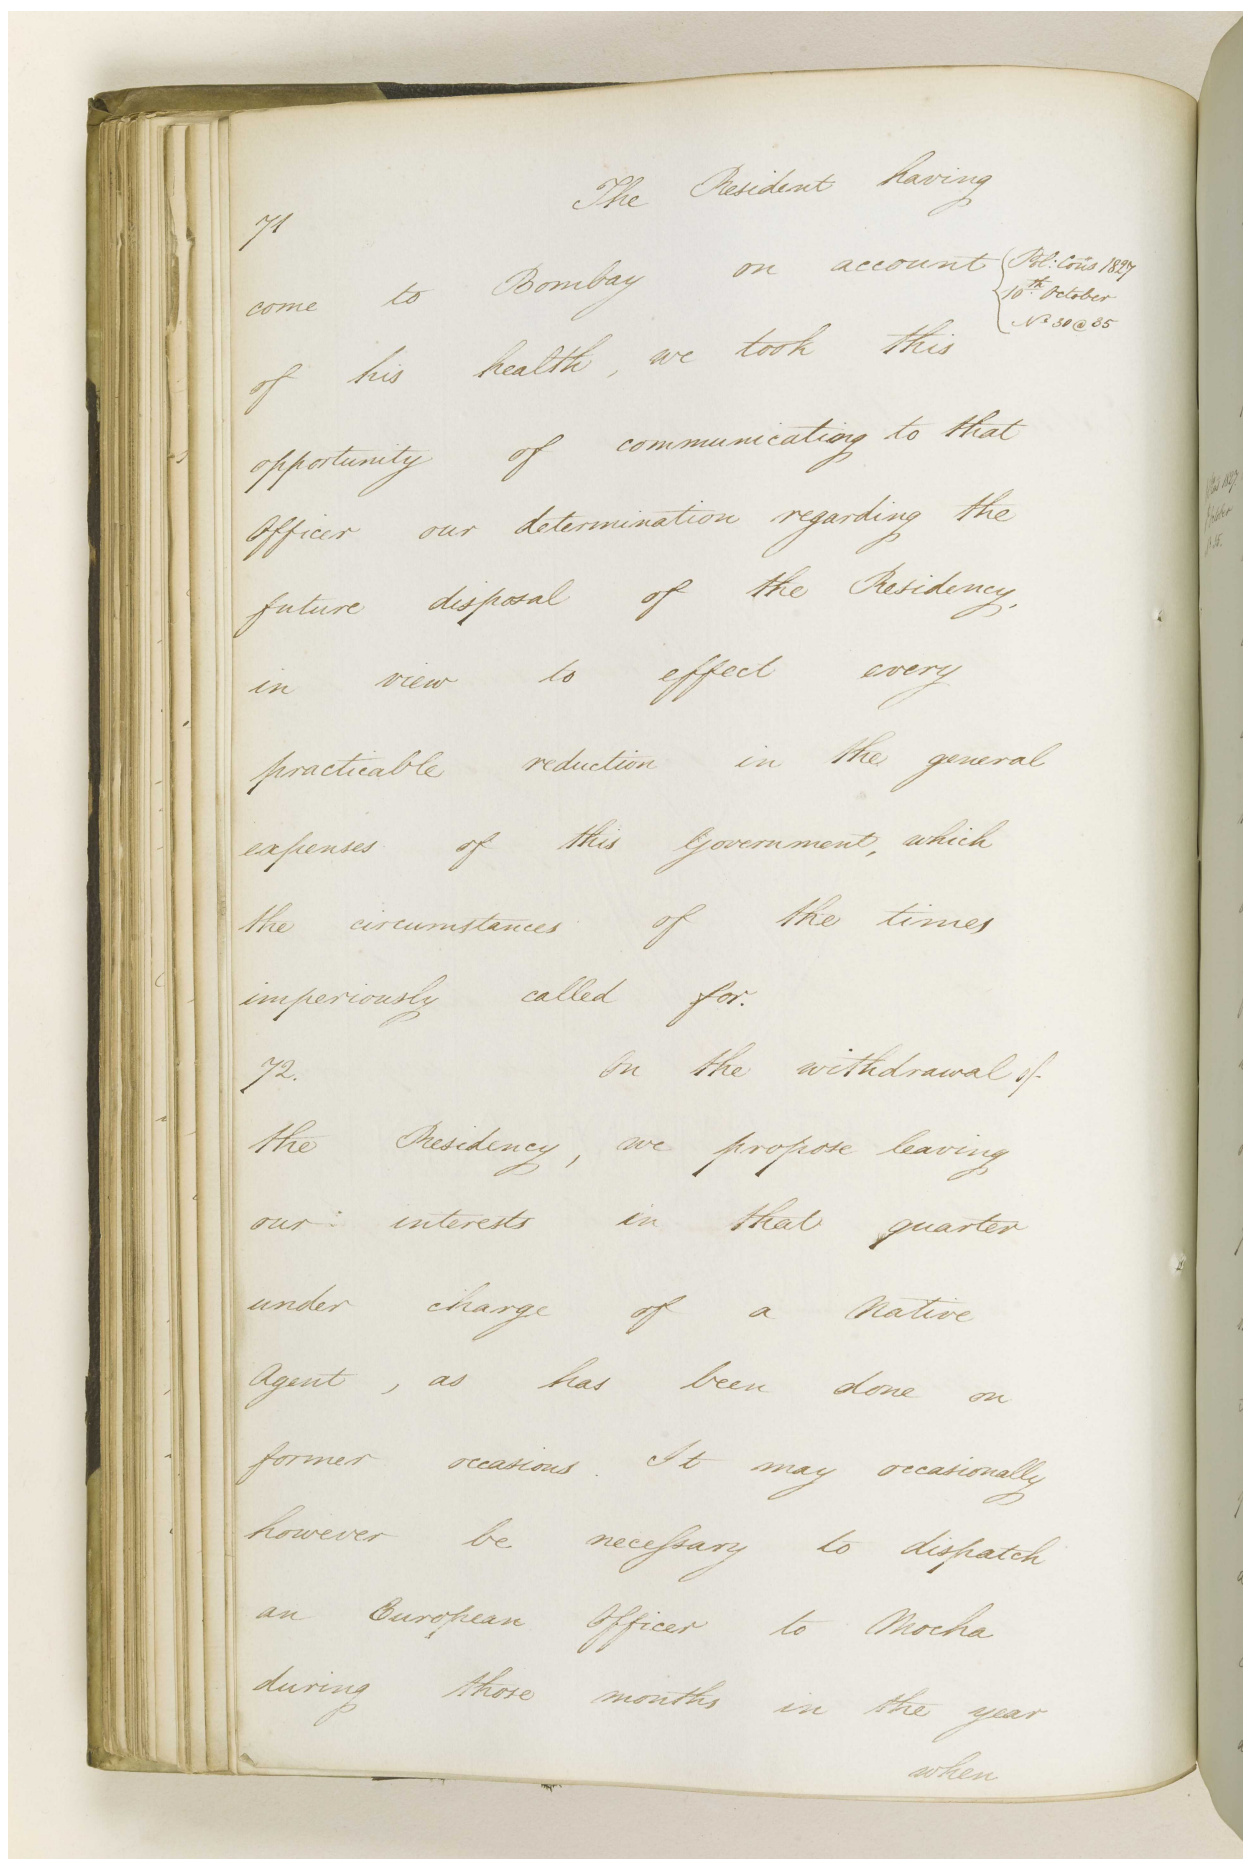 The Resident having
71
come to Bombay on account
Pol: Cons 1827
10th October
No 30 @ 35
of his health, we took this
opportunity of communicating to that
Officer our determination regarding the
future disposal of the Residency,
in view to effect every
practicable reduction in the general
expenses of this Government, which
the circumstances of the times
imperiously called for.
72. On the withdrawal of
the Residency, we propose leaving
our interests in that quarter
under charge of a Native
Agent, as has been done on
former occasions. It may occasionally
however be necessary to dispatch
an European Officer to Mocha
during those months in the year
when